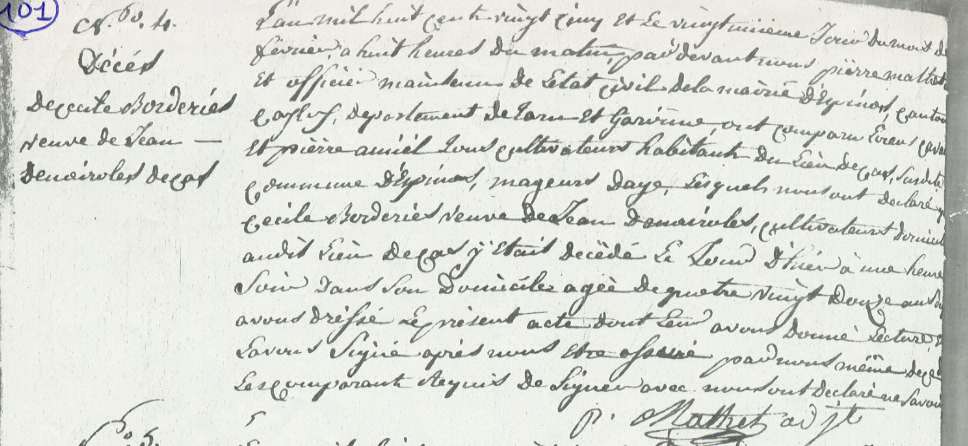 101
N.° 4.
Décés
De Cecile Borderiés
veuve de Jean —
Denoiroles de cas
L'an mil huit cent vingt cinq et le vingt unieme Jour du mois de
février, a huit heures du matin, par devant nous pierre mathet
Et officier de l'état civil de la mairie D'Espinas, canton
caylus, departement de Tarn et Garonne, ont comparu
Et pierre amiél tous cultivateurs habitants du Lieu de cas, susdite
commune D'Espinas, mageurs D'age, Lesquels nous ont declaré q
Cecile Borderiés veuve de Jean Denoiroles, cultivateurs
audit Lieu de cas y Etait décédé Le Jour D'hier à une heure
Soir dans son Domicile, agée De quatre vingt Douze ans
avons dréssé Le présent acte dont Leur avons Donné Lecture,
Lavons Signé aprés nous etre assuré par nous même
Les comparant Requis de Signer avec nous ont declaré ne Savoir
p. Mathet adjt
5
N.° 5.